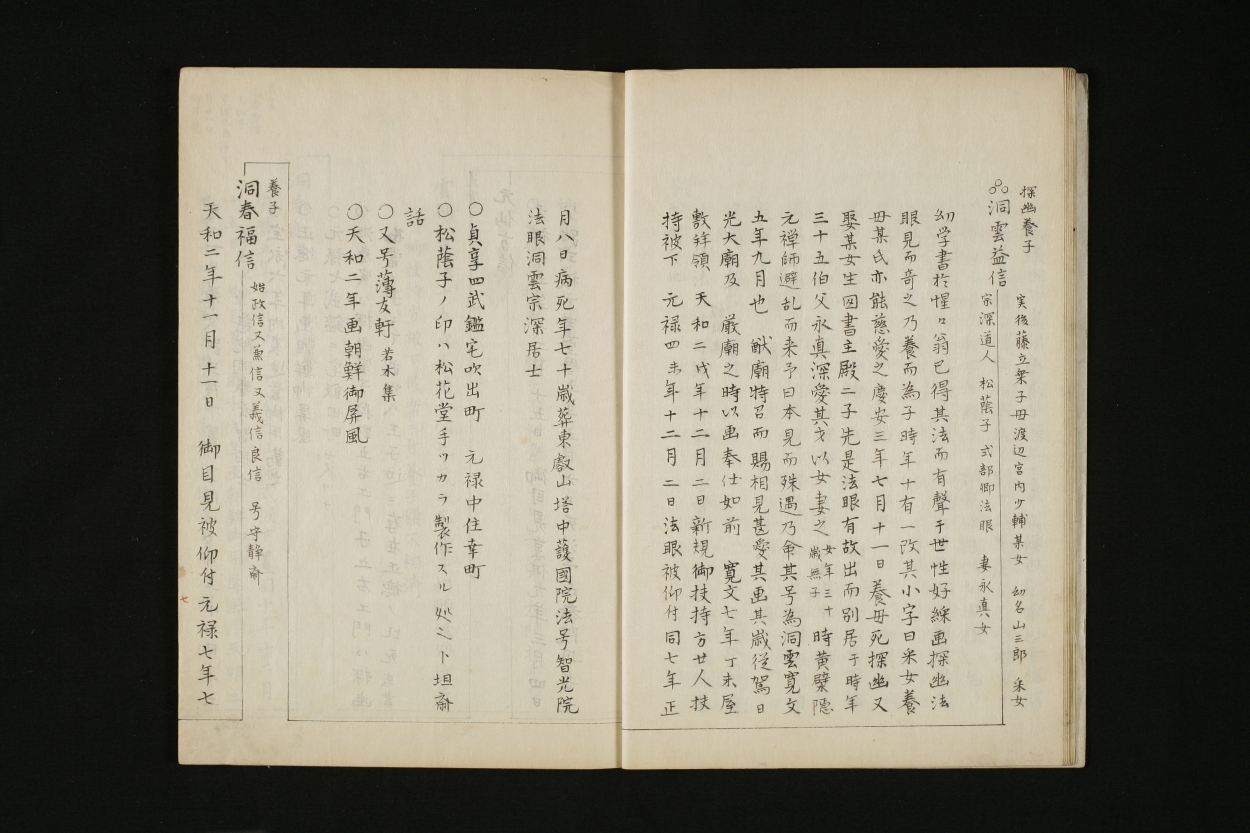 探幽養子
洞雲益信
実後藤立乗子母渡辺宮内少輔某女 幼名山三郎 采女
宗深道人 松蔭子 式部卿法眼 妻永真女
幼学書於惺々翁已得其法而有聲于世性好綵画探幽法
眼見而奇之乃養而為子時年十有一改其小字曰采女養
母某氏亦能慈愛之慶安三年七月十一日養母死探幽又
娶某女生図書主殿二子先是法眼有故出而別居于時年
三十五伯父永真深愛其才以女妻之 女年三十歳無子 時黄檗隠
元禅師避乱而来予日本見而殊遇乃命其号為洞雲寛文
五年九月也 猷廟特召而賜相見甚愛其画其歳従駕日
光大廟及 厳廟之時以画奉仕如前 寛文七年丁未屋
敷拝領 天和二戌年十二月二日新規御扶持方廿人扶
持被下 元禄四未年十二月二日法眼被仰付同七年正
月八日病死年七十歳葬東叡山塔中護國院法号智光院
法眼洞雲宗深居士
〇貞享四武鑑宅吹出町 元禄中住幸町
〇松蔭子ノ印ハ松花堂手ツカラ製作スル処之ト坦斎
話
〇又号薄友軒 若木集
〇天和二年画朝鮮御屏風
養子
洞春福信 始政信又兼信又義信良信 号守静斎
天和二年十一月十一日 御目見被仰付元禄七年七